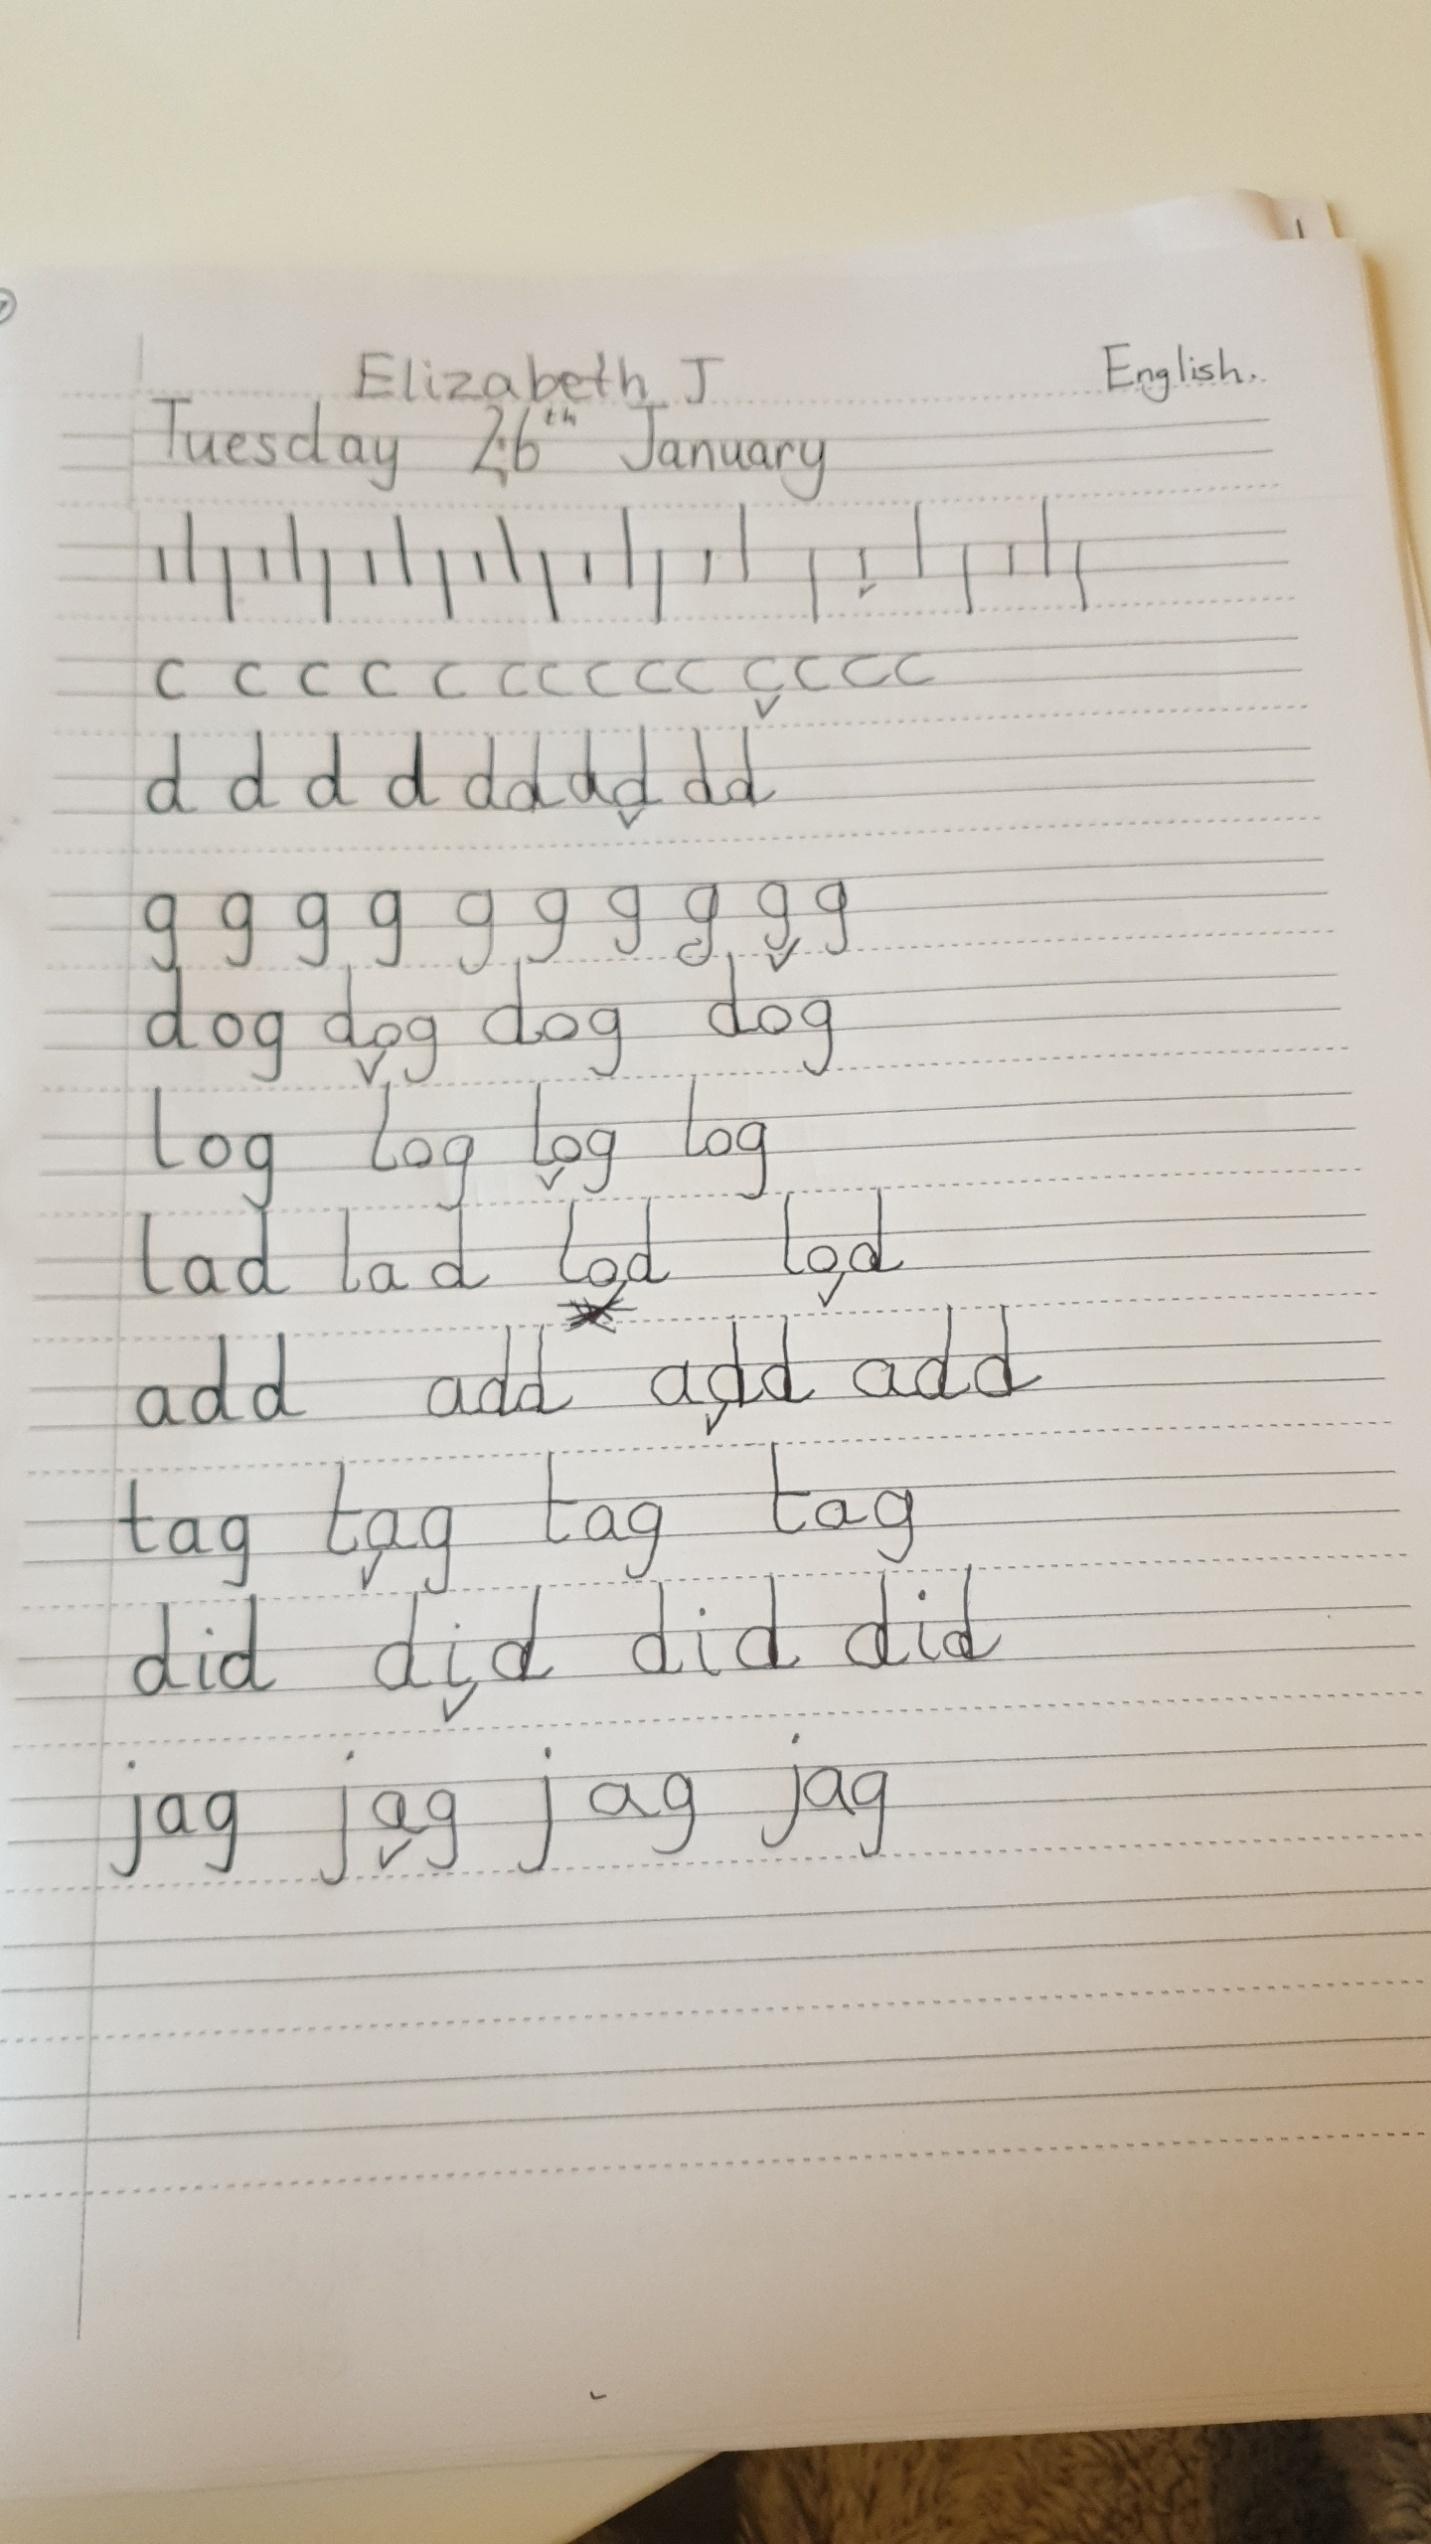 Elizabeth J
English.
Tuesday 26th January
c c c c c c c c c c c c c c c
d d d d d d d d d d
g g g g g g g g g g
dog dog dog dog
log log log log
lad lad lod lod
add add add add
tag tag tag tag
did did did did
jag jag jag jag